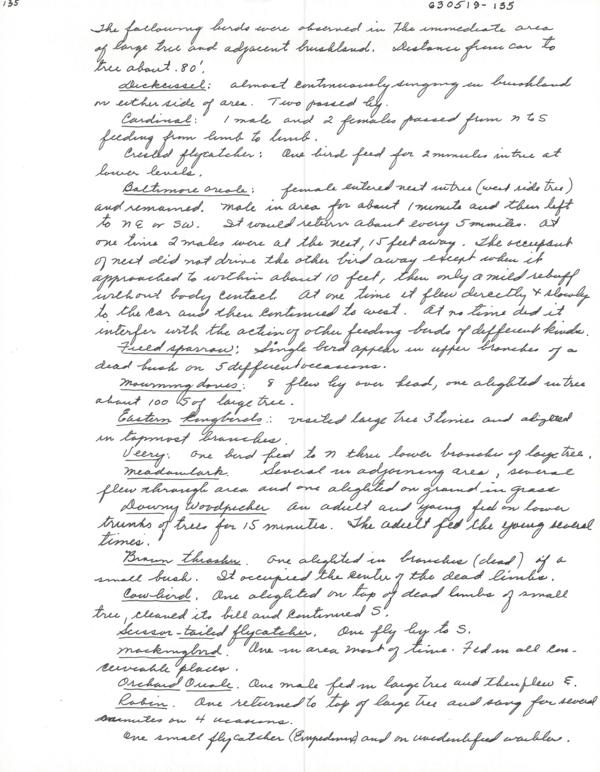 135
630519-135
The following birds were observed in the immediate area
of large tree and adjacent brushland. Distance from car to
tree about 80'.
Dickcissel: almost continuously singing in brushland
on either side of area. Two passed by.
Cardinal: 1 male and 2 females passed from n to S
feeding from limb to limb.
Crested flycatcher: One bird feed for 2 minutes in tree at
lower levels.
Baltimore oriole: female entered nest in tree (west side tree)
and remained. Male in area for about 1 minute and then left
to NE or SW. It would return about every 5 minutes. At
one time 2 males were at the nest, 15 feet away. The occupant
of nest did not drive the other bird away except when it
approached to within about 10 feet, then only a mild rebuff
without body contact. At one time it flew directly & slowly
to the car and then continued to west. At no time did it
interfer with the action of other feeding birds of different kinds.
Field sparrow: Single bird appear in upper branches of a
dead bush on 5 different occasions.
Mourning doves: 8 flew by over head, one alighted in tree
about 100 S of large tree.
Eastern Kingbirds: visited large tree 3 times and
in topmost branches.
Veery: one bird fed to N thru lower branches of large tree.
Meadowlark. Several in adjoining area, several
flew through area and one alighted on ground in grass
Downy Woodpecker An adult and young fed on lower
trunks of trees for 15 minutes. The adult fed the young several
times.
Brown thrasher. One alighted in branches (dead) of a
small bush. It occupied the centre of the dead limbs.
Cowbird. One alighted on top of dead limbs of small
tree, cleaned its bill and continued S.
Scissor-tailed flycatcher. One fly by to S.
Mockingbird. One in area most of time. Fed in all con-
ceivable places.
Orchard Oriole. One male fed in large tree and then flew E.
Robin. One returned to top of large tree and sang for several
minutes on 4 occasions.
One small flycatcher (Empidonax) and on unidentified warbler.